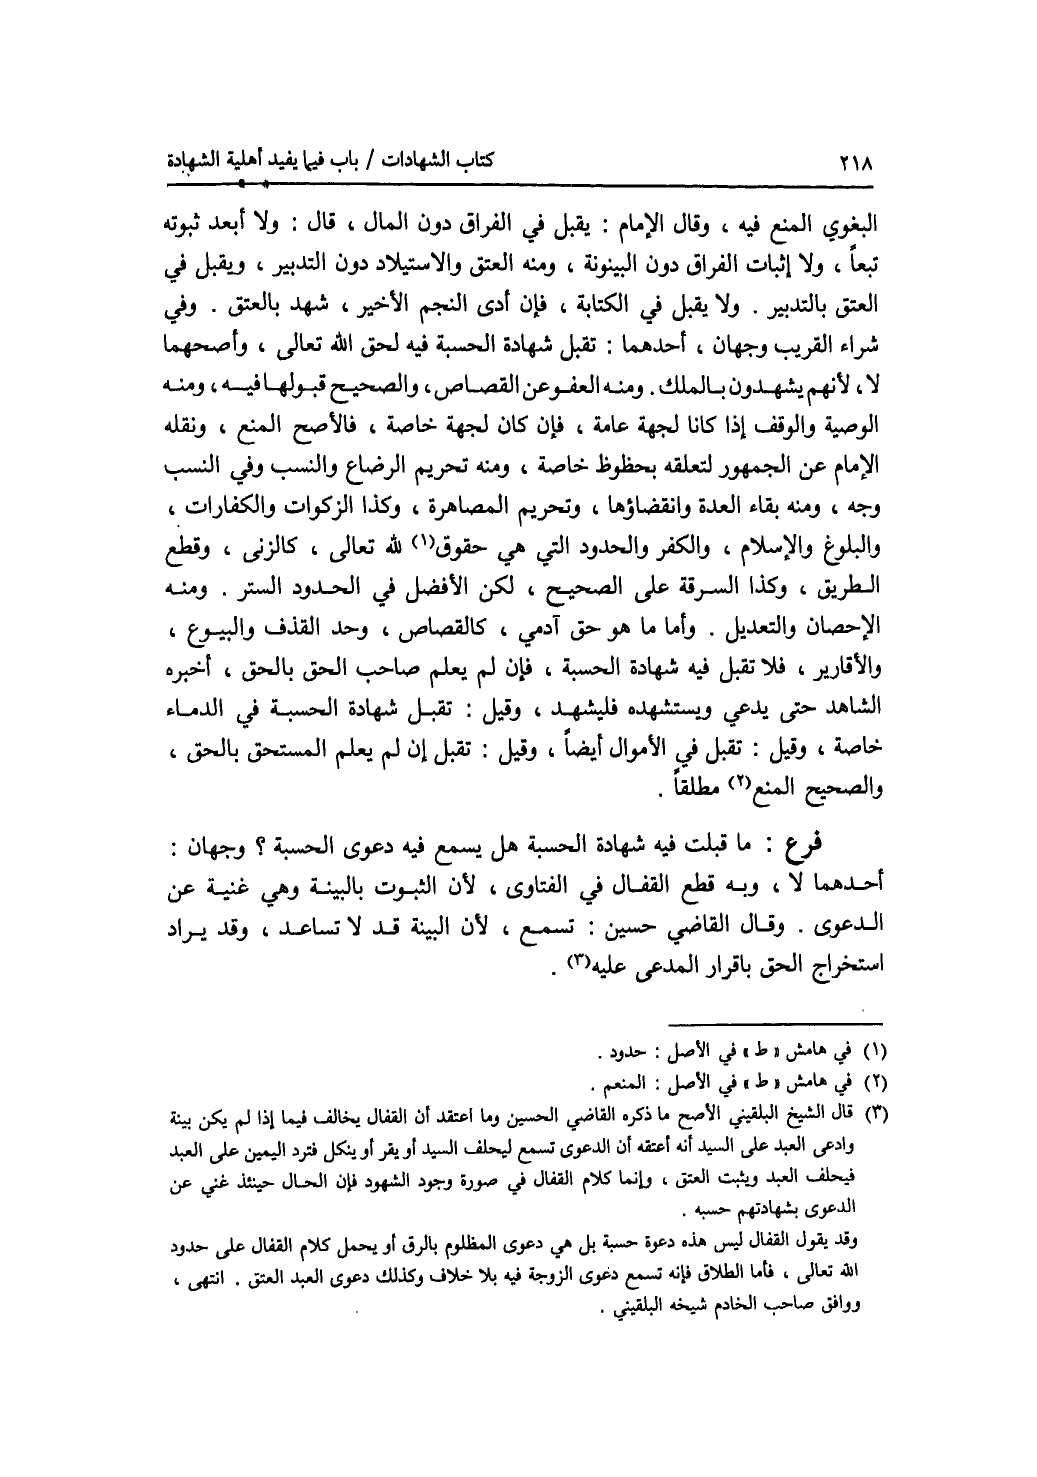 ٢١٨ كتاب الشهادات / باب فيما يفيد أهلية الشهادة
البغوي المنع فيه ، وقال الإمام : يقبل في الفراق دون المال ، قال : ولا أبعد ثبوته
تبعاً ، ولا إثبات الفراق دون البينونة ، ومنه العتق والاستيلاد دون التدبير ، ويقبل في
العتق بالتدبير . ولا يقبل في الكتابة ، فإن أدى النجم الأخير ، شهد بالعتق . وفي
شراء القريب وجهان ، أحدهما : تقبل شهادة الحسبة فيه لحق الله تعالى ، وأصحهما
لا ، لأنهم يشهدون بالملك . ومنه العفو عن القصاص ، والصحيح قبولها فيه ، ومنه
الوصية والوقف إذا كانا لجهة عامة ، فإن كان لجهة خاصة ، فالأصح المنع ، ونقله
الإمام عن الجمهور لتعلقه بحظوظ خاصة ، ومنه تحريم الرضاع والنسب وفي النسب
وجه ، ومنه بقاء العدة وانقضاؤها ، وتحريم المصاهرة ، وكذا الزكوات والكفارات ،
والبلوغ والإسلام ، والكفر والحدود التي هي حقوق(١) لله تعالى ، كالزنى ، وقطع
الطريق ، وكذا السرقة على الصحيح ، لكن الأفضل في الحدود الستر . ومنه
الإحصان والتعديل . وأما ما هو حق آدمي ، كالقصاص ، وحد القذف والبيوع ،
والأقارير ، فلا تقبل فيه شهادة الحسبة ، فإن لم يعلم صاحب الحق بالحق ، أخبره
الشاهد حتى يدعي ويستشهده فليشهد ، وقيل : تقبل شهادة الحسبة في الدماء
خاصة ، وقيل : تقبل في الأموال أيضاً ، وقيل : تقبل إن لم يعلم المستحق بالحق ،
والصحيح المنع(٢) مطلقاً .
فرع : ما قبلت فيه شهادة الحسبة هل يسمع فيه دعوى الحسبة ؟ وجهان :
أحدهما لا ، وبه قطع القفال في الفتاوى ، لأن الثبوت بالبينة وهي غنية عن
الدعوى . وقال القاضي حسين : تسمع ، لأن البينة قد لا تساعد ، وقد يراد
استخراج الحق باقرار المدعى عليه(٣) .
(١) في هامش « ط » في الأصل : حدود .
(٢) في هامش « ط » في الأصل : المنعم .
(٣) قال الشيخ البلقيني الأصح ما ذكره القاضي الحسين وما اعتقد أن القفال يخالف فيما إذا لم يكن بينة
وادعى العبد على السيد أنه أعتقه أن الدعوى تسمع ليحلف السيد أو يقر أو ينكل فترد اليمين على العبد
فيحلف العبد ويثبت العتق ، وإنما كلام القفال في صورة وجود الشهود فإن الحال حينئذ غني عن
الدعوى بشهادتهم حسبه .
وقد يقول القفال ليس هذه دعوة حسبة بل هي دعوى المظلوم بالرق أو يحمل كلام القفال على حدود
الله تعالى ، فأما الطلاق فإنه تسمع دعوى الزوجة فيه بلا خلاف وكذلك دعوى العبد العتق . انتهى ،
ووافق صاحب الخادم شيخه البلقيني .